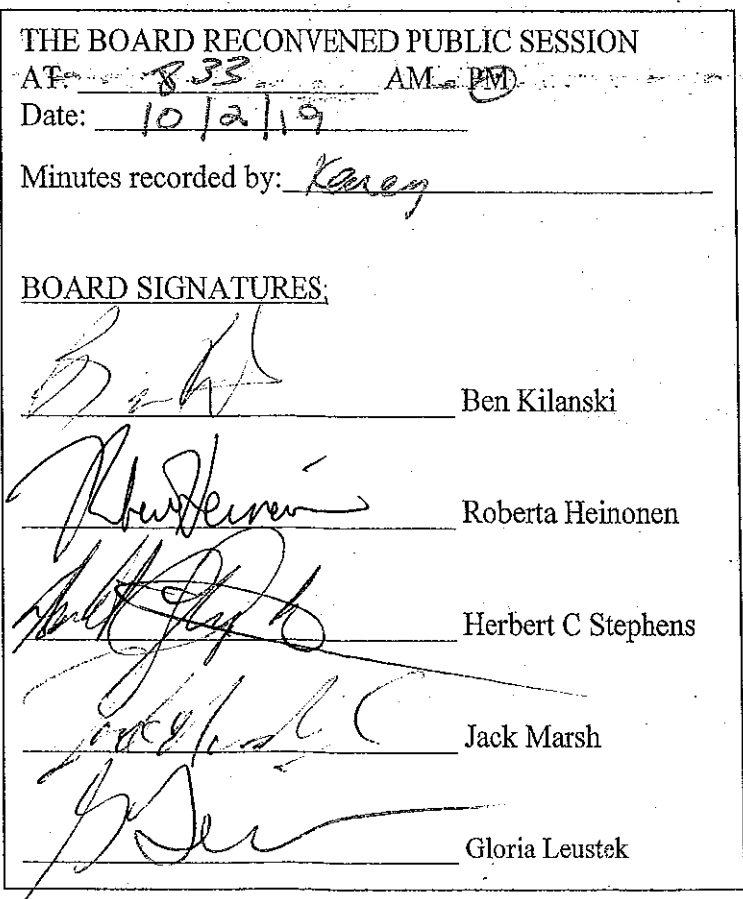 THE BOARD RECONVENED PUBLIC SESSION
AT: 833 AM PM
Date: 10/2/19
Minutes recorded by: Karen
BOARD SIGNATURES:
Ben Kilanski
Roberta Heinonen
Herbert C Stephens
Jack Marsh
Gloria Leustek